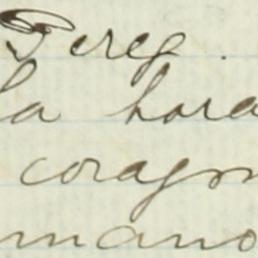 Pereg.
la hora
corazon
mano